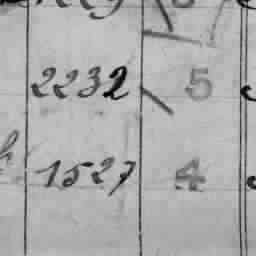 2232 5
1527 4